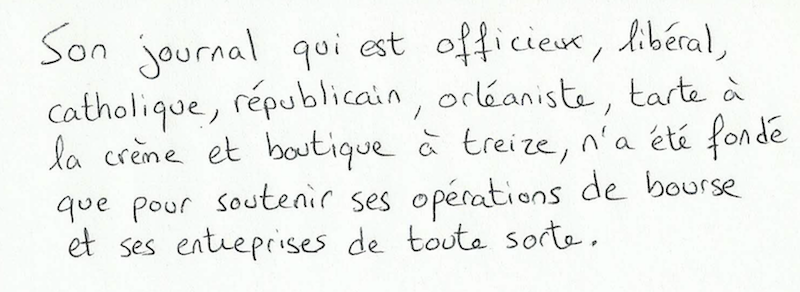 Son journal qui est officieux, libéral,
catholique, républicain, orléaniste, tarte à
la crème et boutique à treize, n'a été fondé
que pour soutenir ses opérations de bourse
et ses entreprises de toute sorte.